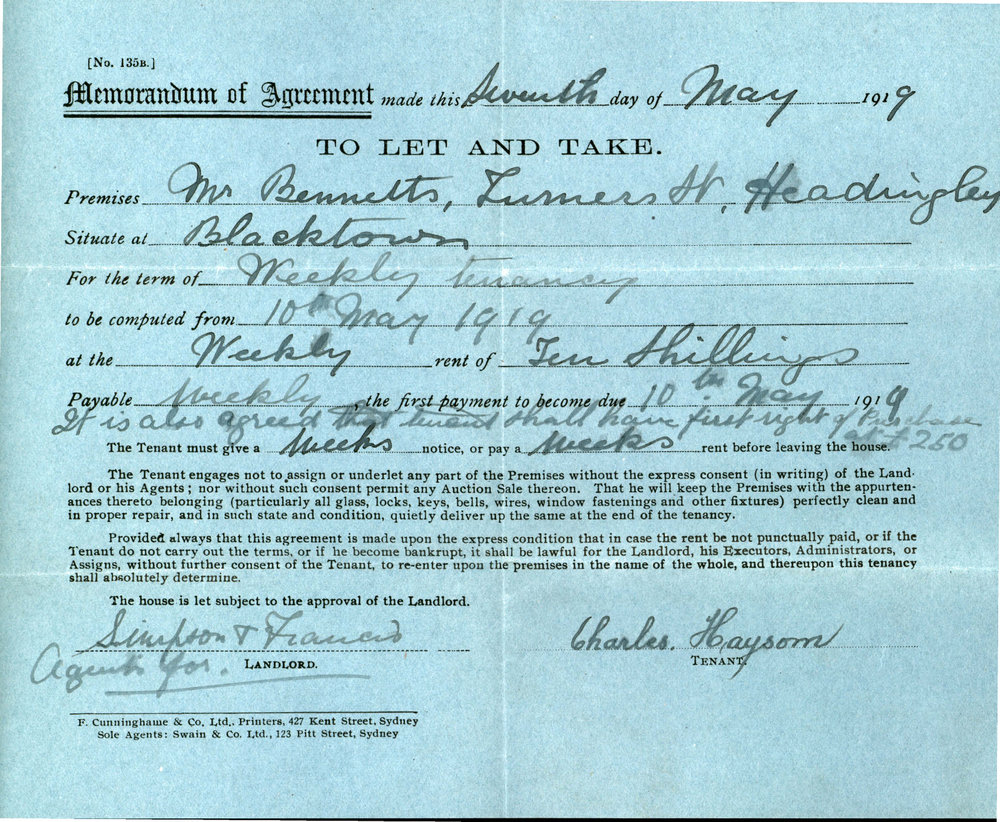 [No. 135B.]
Memorandum of Agreement made this Seventh day of May 1919
TO LET AND TAKE.
Premises Mr Bennetts, Turners St, Headingley
Situate at Blacktown
For the term of Weekly tenancy
to be computed from 10th May 1919
at the Weekly rent of Ten Shillings
Payable Weekly, the first payment to become due 10th May 1919
It is also agreed that tenant shall have first right of Purchase
at £250
The Tenant must give a weeks notice, or pay a weeks rent before leaving the house.
The Tenant engages not to assign or underlet any part of the Premises without the express consent (in writing) of the Land-
lord or his Agents; nor without such consent permit any Auction Sale thereon. That he will keep the Premises with the appurten-
ances thereto belonging (particularly all glass, locks, keys, bells, wires, window fastenings and other fixtures) perfectly clean and
in proper repair, and in such state and condition, quietly deliver up the same at the end of the tenancy.
Provided always that this agreement is made upon the express condition that in case the rent be not punctually paid, or if the
Tenant do not carry out the terms, or if he become bankrupt, it shall be lawful for the Landlord, his Executors, Administrators, or
Assigns, without further consent of the Tenant, to re-enter upon the premises in the name of the whole, and thereupon this tenancy
shall absolutely determine.
The house is let subject to the approval of the Landlord.
Simpson & Francis
Agents for. LANDLORD.
Charles. Haysom
TENANT.
F. Cunninghame & Co. Ltd., Printers, 427 Kent Street, Sydney
Sole Agents: Swain & Co. Ltd., 123 Pitt Street, Sydney